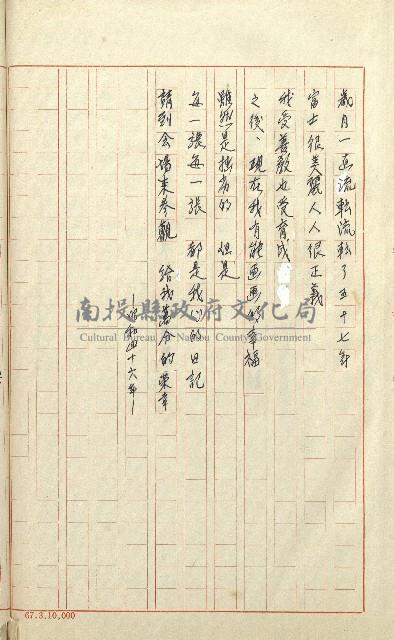 歲月一直流転流転了五十七年
富士很美麗人人很正義
我受善教也受育成
之後、現在我有能画画的幸福
雖然是拙劣的 但是
每一張每一張 都是我心的日記
請到会場来参觀 給我萬分的栄幸
—昭和四十六年—
南投縣政府文化局
Cultural Bureau of Nantou County Government
67.3.10,000